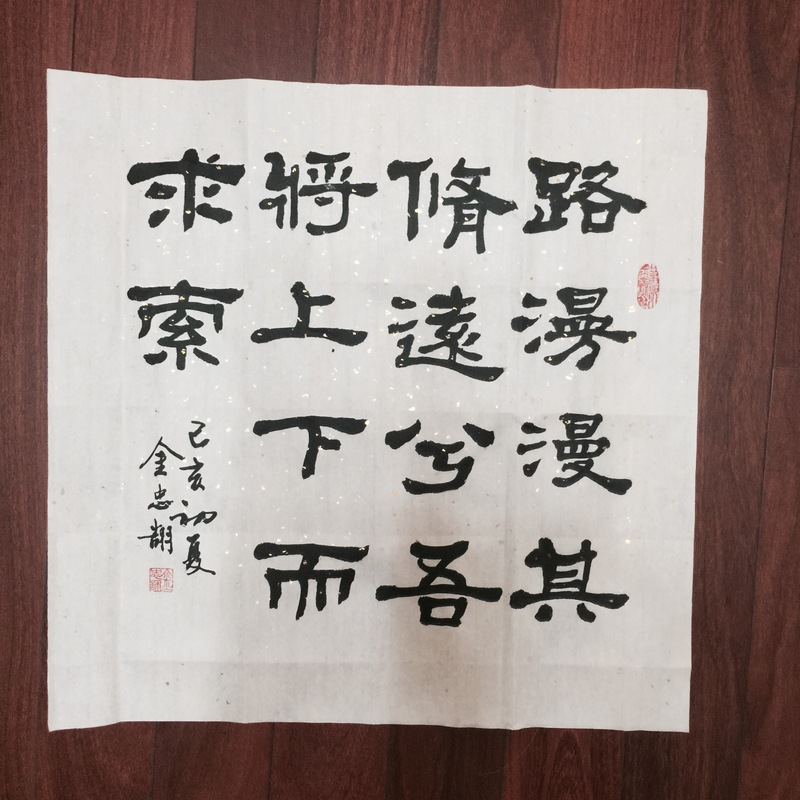 路漫漫其
脩遠兮吾
將上下而
求索
己亥初夏
金忠翮